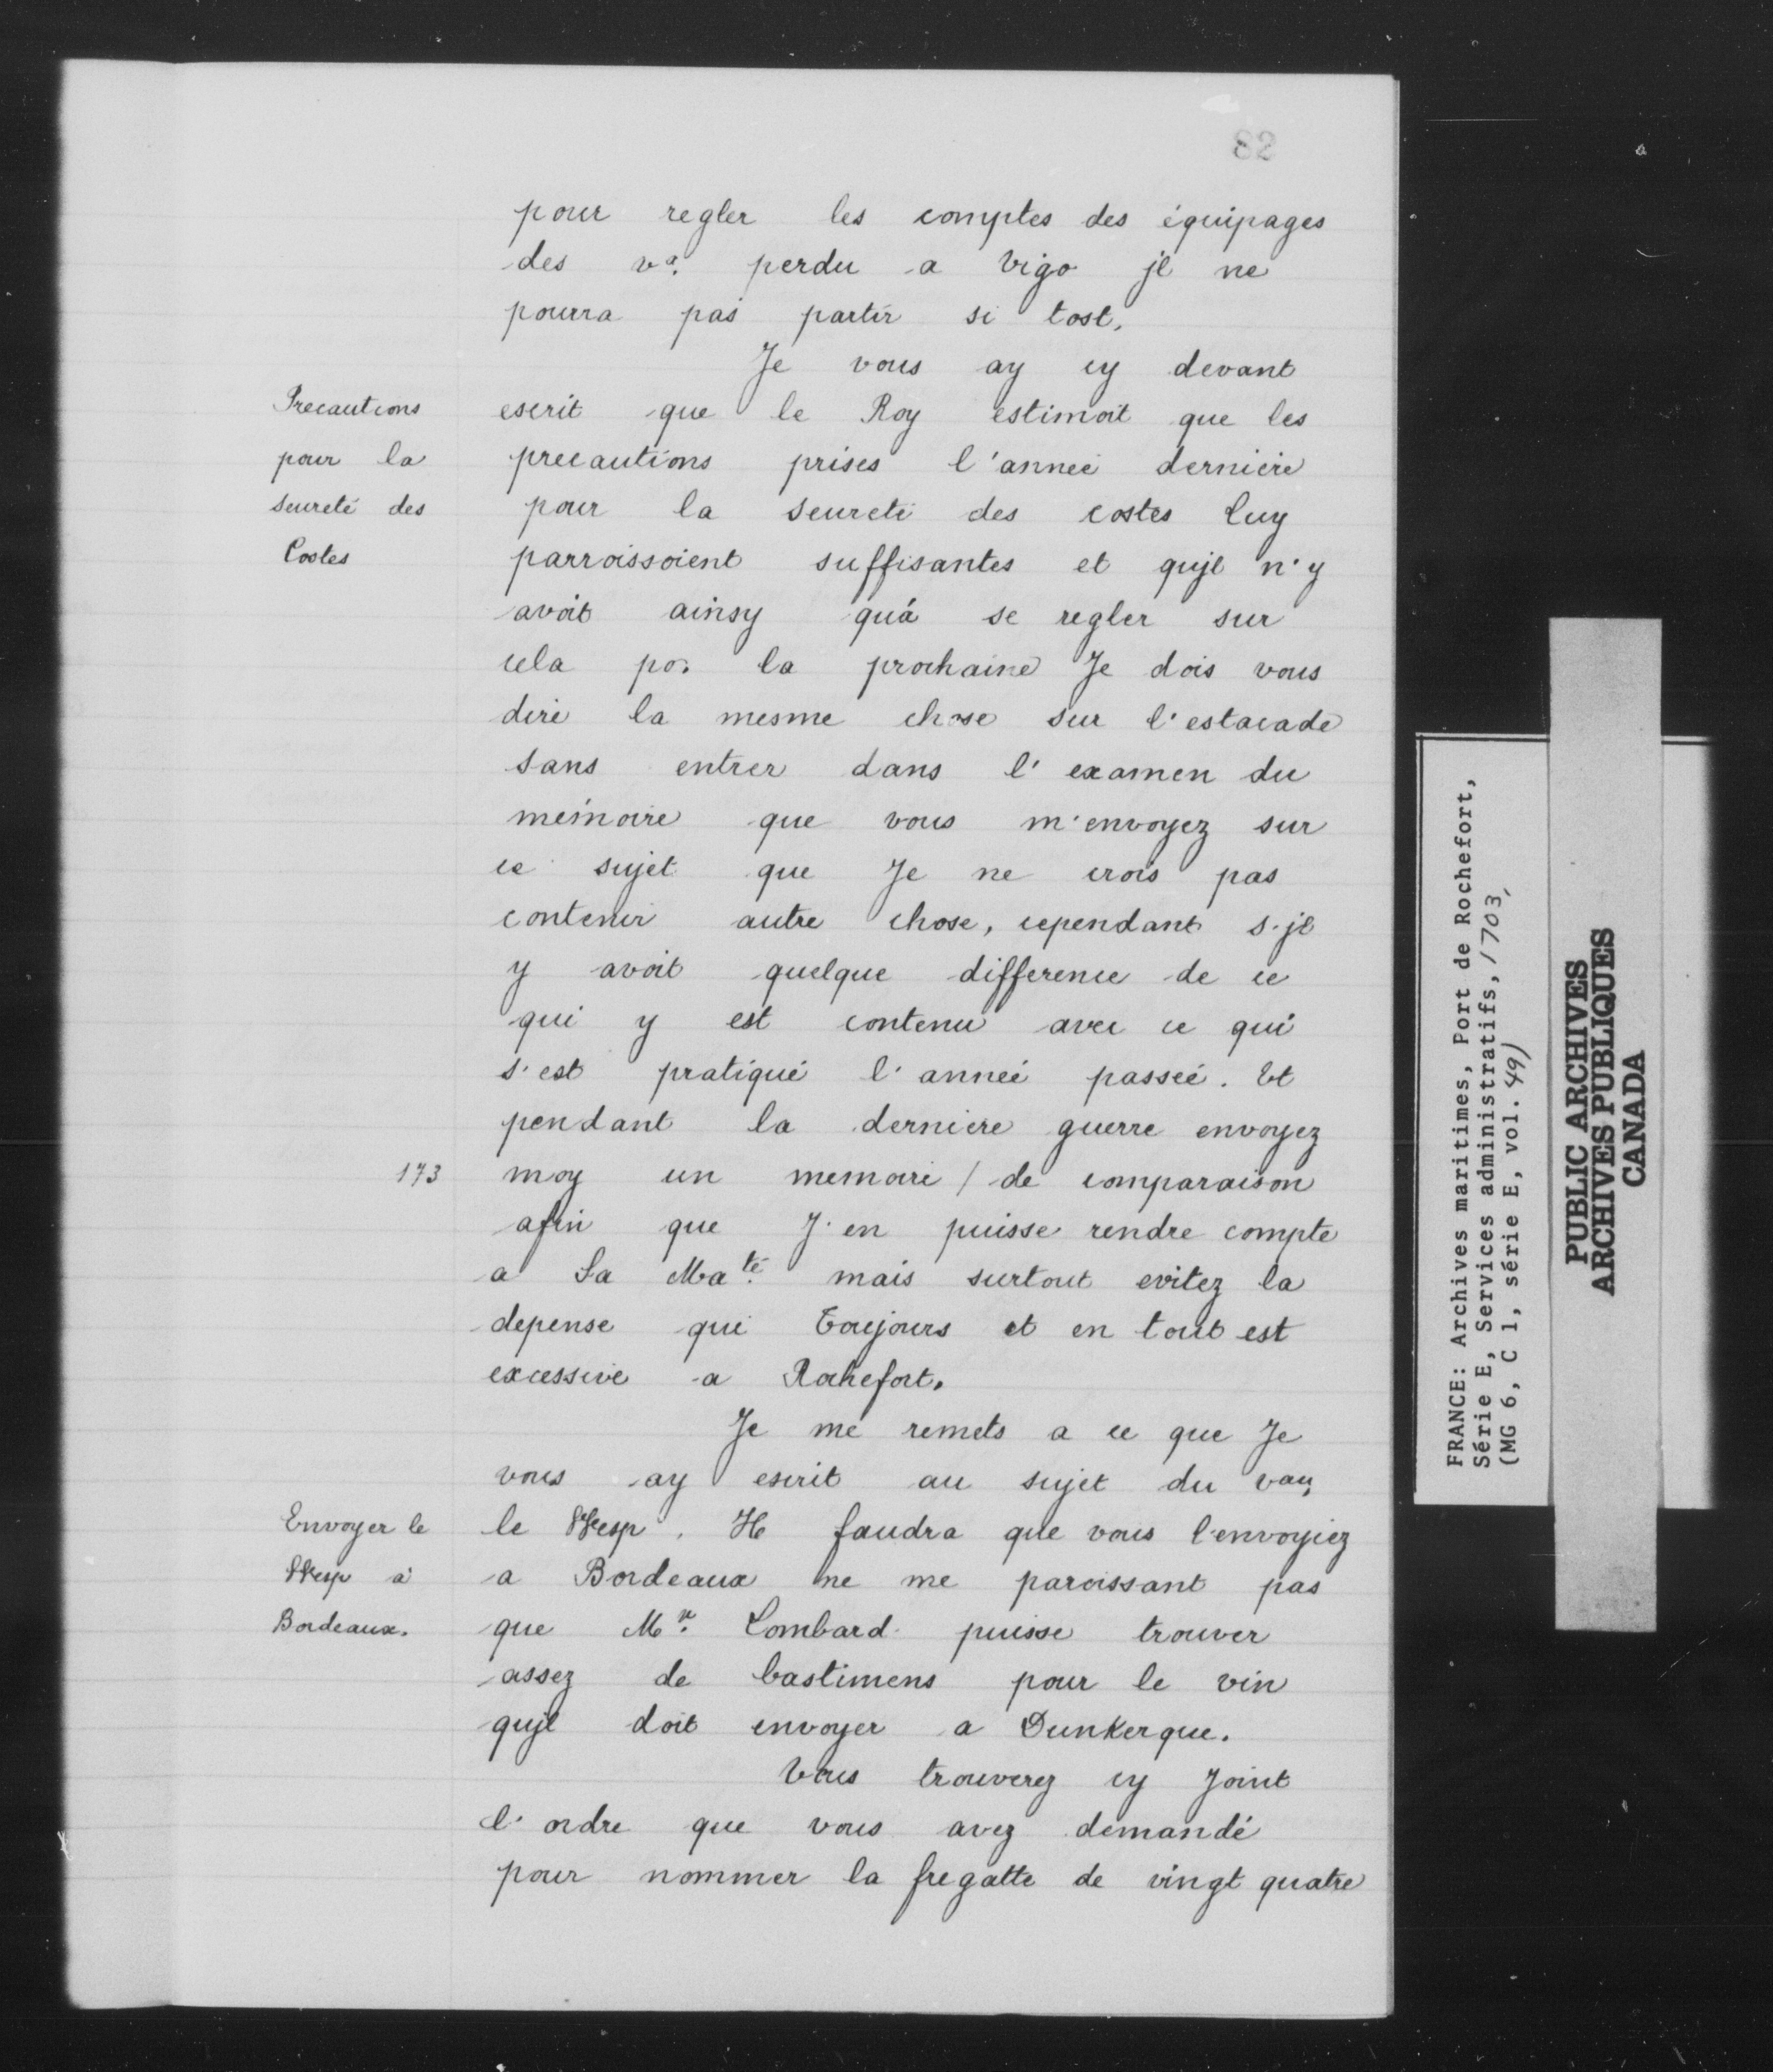 82
pour regler les comptes des équipages
des va. perdu a Vigo jl ne
pourra pas partir si tost.
Je vous ay cy devant
Precautions
pour la
seureté des
Costes
escrit que le Roy estimoit que les
precautions prises l'anneé derniere
pour la seureté des costes luy
parroissoient suffisantes et qujl n'y
avoit ainsy qu'á se regler sur
cela po. la prochaine Je dois vous
dire la mesme chose sur l'estacade
sans entrer dans l'examen du
mémoire que vous m'envoyez sur
ce sujet que Je ne crois pas
contenir autre chose, cependant s'jl
y avoit quelque difference de ce
qui y est contenu avec ce qui
s'est pratiqué l'anneé passeé. Et
pendant la derniere guerre envoyez
173
moy un memoire / de comparaison
afin que J'en puisse rendre compte
a Sa Maté. mais surtout evitez la
depense qui Toujours et en tout est
excessive a Rochefort.
Je me remets a ce que Je
vous ay escrit au sujet du vau,
Envoyer le
Wesp à
Bordeaux.
le Wesp. Il faudra que vous l'envoyiez
a Bordeaux ne me paroissant pas
que Mr. Lombard puisse trouver
assez de bastimens pour le vin
qujl doit envoyer a Dunkerque.
Vous trouverez cy Joint
l'ordre que vous avez demandé
pour nommer la fregatte de vingt quatre
FRANCE: Archives maritimes, Port de Rochefort,
Série E, Services administratifs, 1703,
(MG 6, C 1, série E, vol. 49)
PUBLIC ARCHIVES
ARCHIVES PUBLIQUES
CANADA